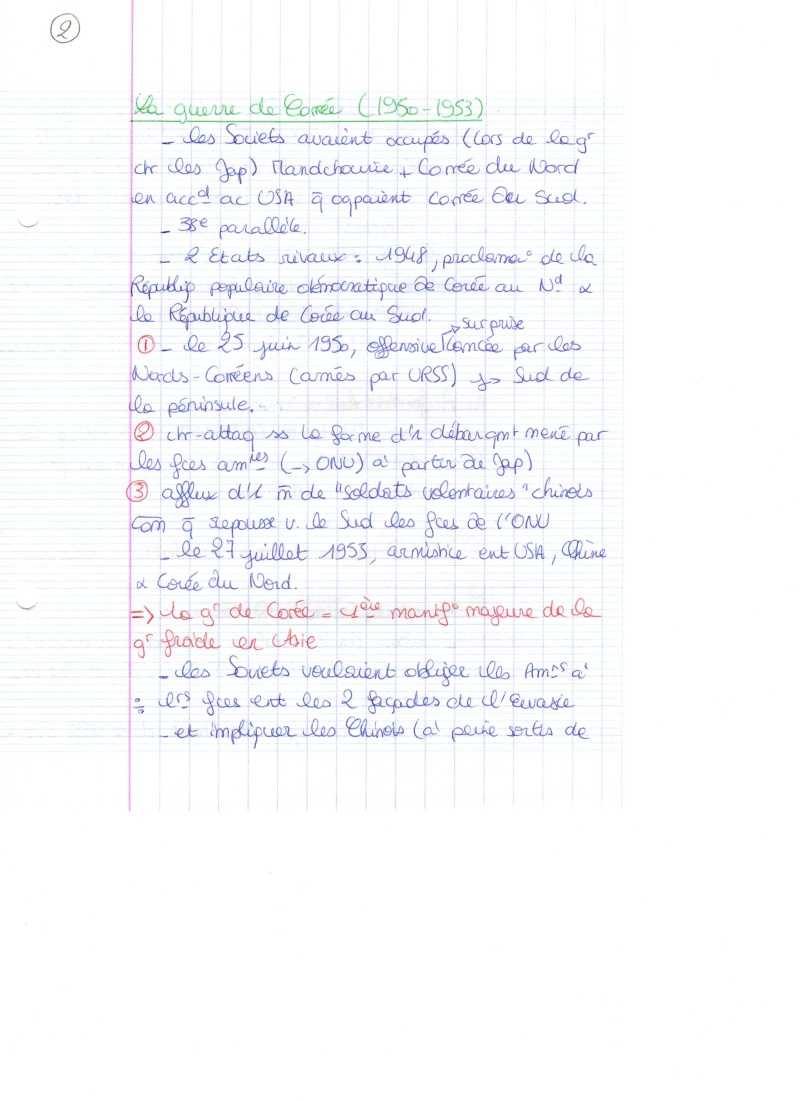 2
La guerre de Corrée (1950-1953)
- les Soviets avaient occupés (lors de la gr
ctr les Jap) Mandchourie + Corrée du Nord
en accd ac USA q̄ occupaient Corrée du Sud.
- 38e parallèle.
- 2 Etats rivaux : 1948, proclamao de la
Républiq populaire démocratique de Corée au Nd &
la République de Corée au Sud.
surprise
① - le 25 juin 1950, offensive lancée par les
Nords-Corréens (armés par URSS) Sud de
la péninsule.
② ctr-attaq ss la forme d'1 débarqmt mené par
les fces amres (→ ONU) à partir du Jap)
③ afflux d'1 m̄ de "soldats volontaires" chinois
Com q̄ repousse v. le Sud les fces de l'ONU
- le 27 juillet 1953, armistice ent USA, Chine
& Corée du Nord.
=> la gr de Corée = 1ère manifo majeure de la
gr froide en Asie
- les Soviets voulaient obliger les Amrs à
÷ lrs fces ent les 2 façades de l'Eurasie
- et impliquer les Chinois (à peine sortis de